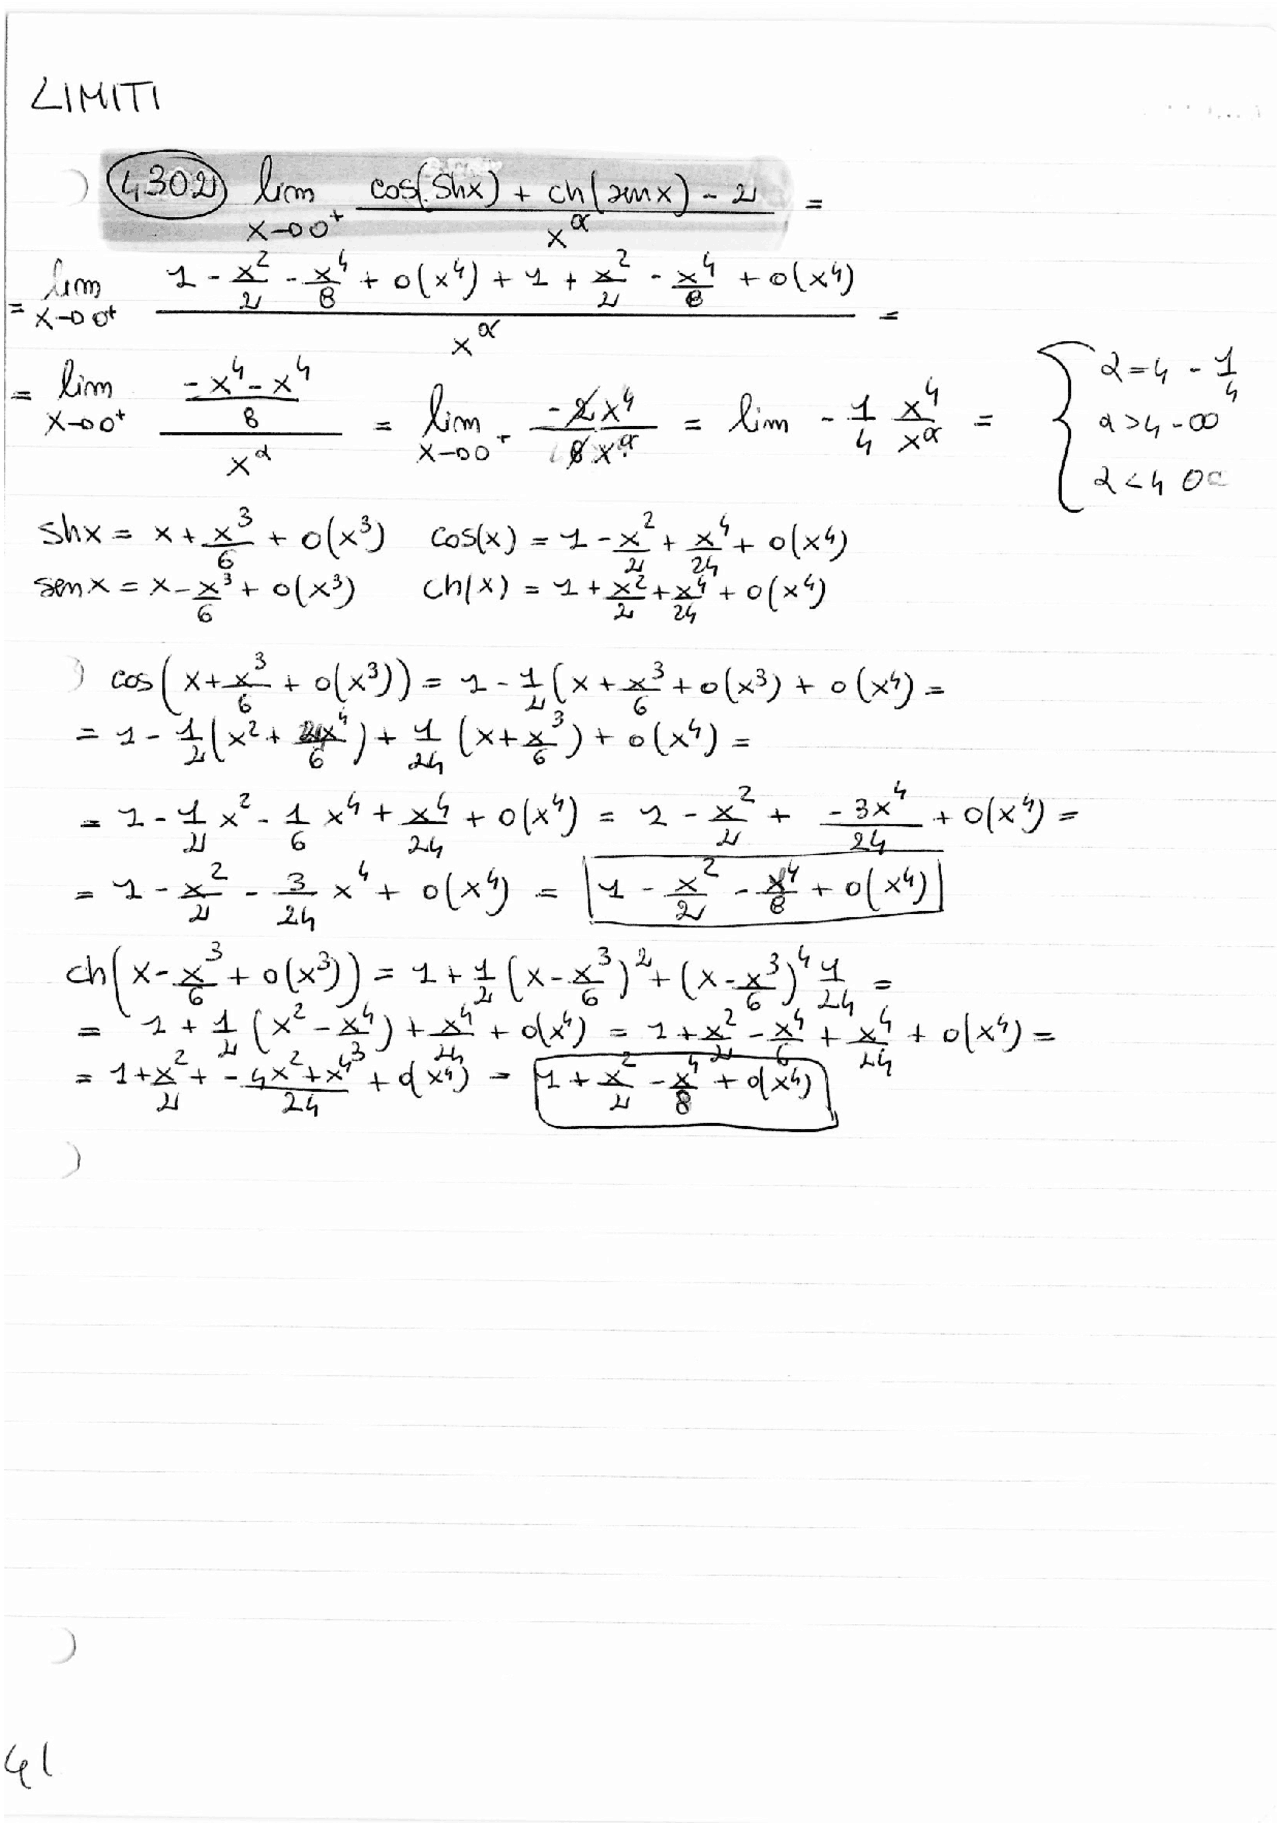 LIMITI
4302 lim x→0⁺ (cos(shx) + ch(senx) - 2)/x^α =
= lim x→0⁺ (1 - x²/2 - x⁴/8 + o(x⁴) + 1 + x²/2 - x⁴/8 + o(x⁴))/x^α =
= lim x→0⁺ ((-x⁴-x⁴)/8)/x^α = lim x→0⁺ -2x⁴/8x^α = lim - 1/4 x⁴/x^α = { α=4 - 1/4
α>4 -∞
α<4 0
shx = x + x³/6 + o(x³) cos(x) = 1 - x²/2 + x⁴/24 + o(x⁴)
senx = x - x³/6 + o(x³) ch(x) = 1 + x²/2 + x⁴/24 + o(x⁴)
cos(x + x³/6 + o(x³)) = 1 - 1/2(x + x³/6 + o(x³) + o(x⁴) =
= 1 - 1/2(x² + 2x⁴/6) + 1/24 (x + x³/6) + o(x⁴) =
= 1 - 1/2 x² - 1/6 x⁴ + x⁴/24 + o(x⁴) = 1 - x²/2 + -3x⁴/24 + o(x⁴) =
= 1 - x²/2 - 3/24 x⁴ + o(x⁴) = 1 - x²/2 - x⁴/8 + o(x⁴)
ch(x - x³/6 + o(x³)) = 1 + 1/2 (x - x³/6)² + (x - x³/6)⁴ 1/24 =
= 1 + 1/2 (x² - x⁴/3) + x⁴/24 + o(x⁴) = 1 + x²/2 - x⁴/6 + x⁴/24 + o(x⁴) =
= 1 + x²/2 + -4x²+x⁴/24 + o(x⁴) = 1 + x²/2 - x⁴/8 + o(x⁴)
41